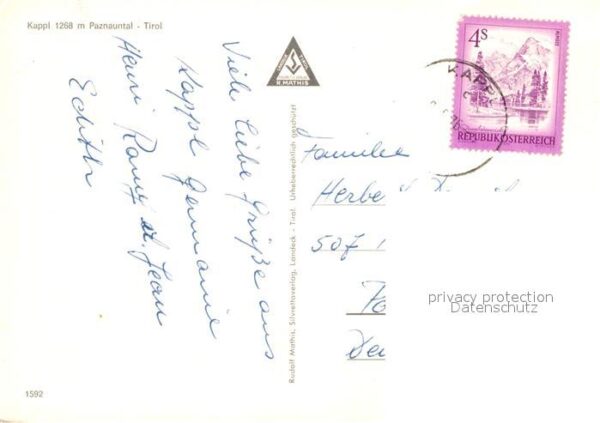 Kappl 1268 m Paznauntal - Tirol
Viele liebe Grüße aus
Kappl Germanie
Henri Ranz u. Jean
Edith
R. MATHIS
Rudolf Mathis, Silvrettaverlag, Landeck - Tirol. Urheberrechtlich geschützt
4S
ALMSEE
REPUBLIK ÖSTERREICH
KAPPL
Familie
Herbe
507
privacy protection
Datenschutz
1592